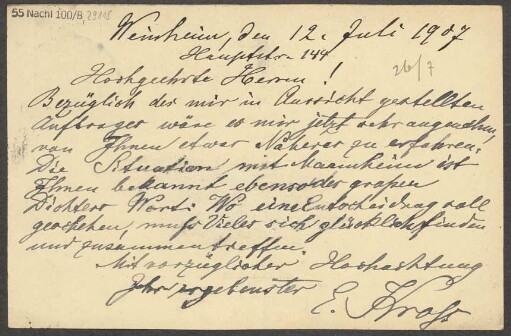 55 Nachl 100/B, 29115
Weinheim, den 12. Juli 1907
Hauptstr. 144
26/7
Hochgeehrte Herren!
Bezüglich des mir in Aussicht gestellten
Auftrages wäre es mir jetzt sehr angenehm,
von Ihnen etwas Näheres zu erfahren.
Die Situation mit Mannheim ist
Ihnen bekannt ebenso des großen
Dichters Wort: Wo eine Entscheidung soll
geschehen, muß Vieles sich glücklich finden
und zusammentreffen.
Mit vorzüglicher Hochachtung
Ihr ergebenster
E. Kross